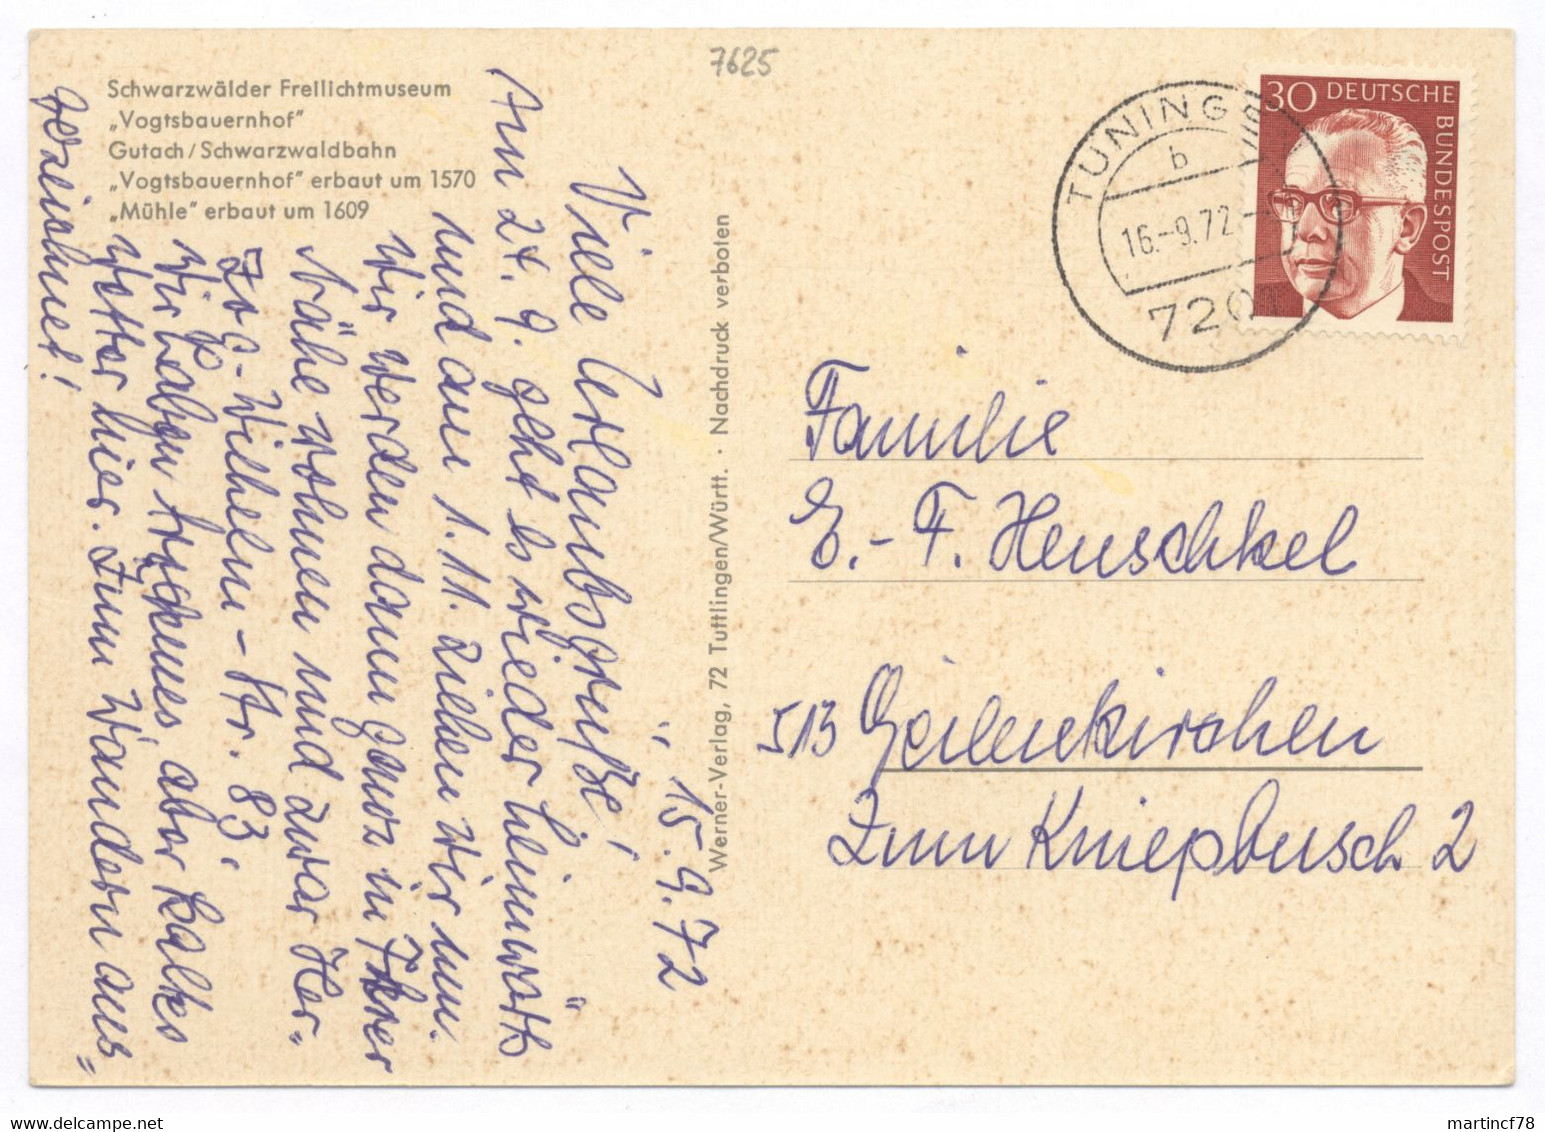 7625
Schwarzwälder Freilichtmuseum
„Vogtsbauernhof"
Gutach/Schwarzwaldbahn
„Vogtsbauernhof" erbaut um 1570
„Mühle" erbaut um 1609
15.9.72
Viele Urlaubsgrüße!
Am 24. 9. geht es wieder heimwärts
und am 1.11. ziehen wir um.
Wir werden dann ganz in Ihrer
Nähe wohnen und zwar Her-
zog-Wilhelm-Str. 83.
Wir haben trockenes, aber kaltes
Wetter hier. Zum Wandern aus-
gezeichnet!
Werner-Verlag, 72 Tuttlingen/Württ. · Nachdruck verboten
TUNINGEN
b
16.-9.72
7201
30 DEUTSCHE
BUNDESPOST
Familie
E.-F. Henschkel
513 Geilenkirchen
Zum Kniepbusch 2
martincf78